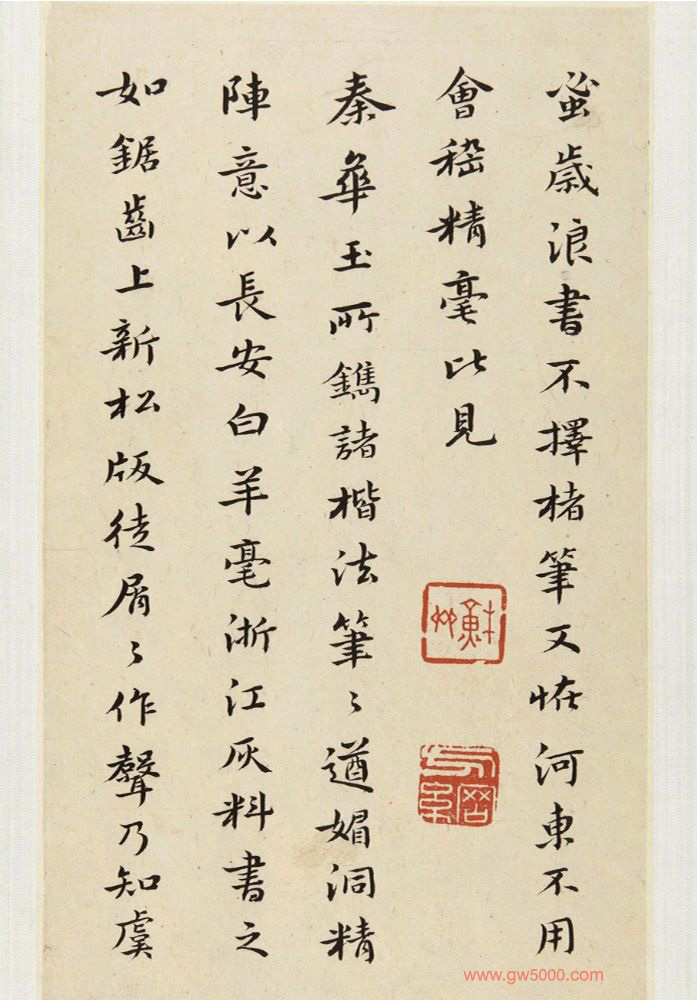 蚤歲浪書不擇楮筆又恠河東不用
會稽精毫比見
秦華玉所鐫諸楷法筆〻遒媚洞精
陣意以長安白羊毫浙江灰料書之
如鋸齒上新松版徒屑〻作聲乃知虞
www.gw5000.com